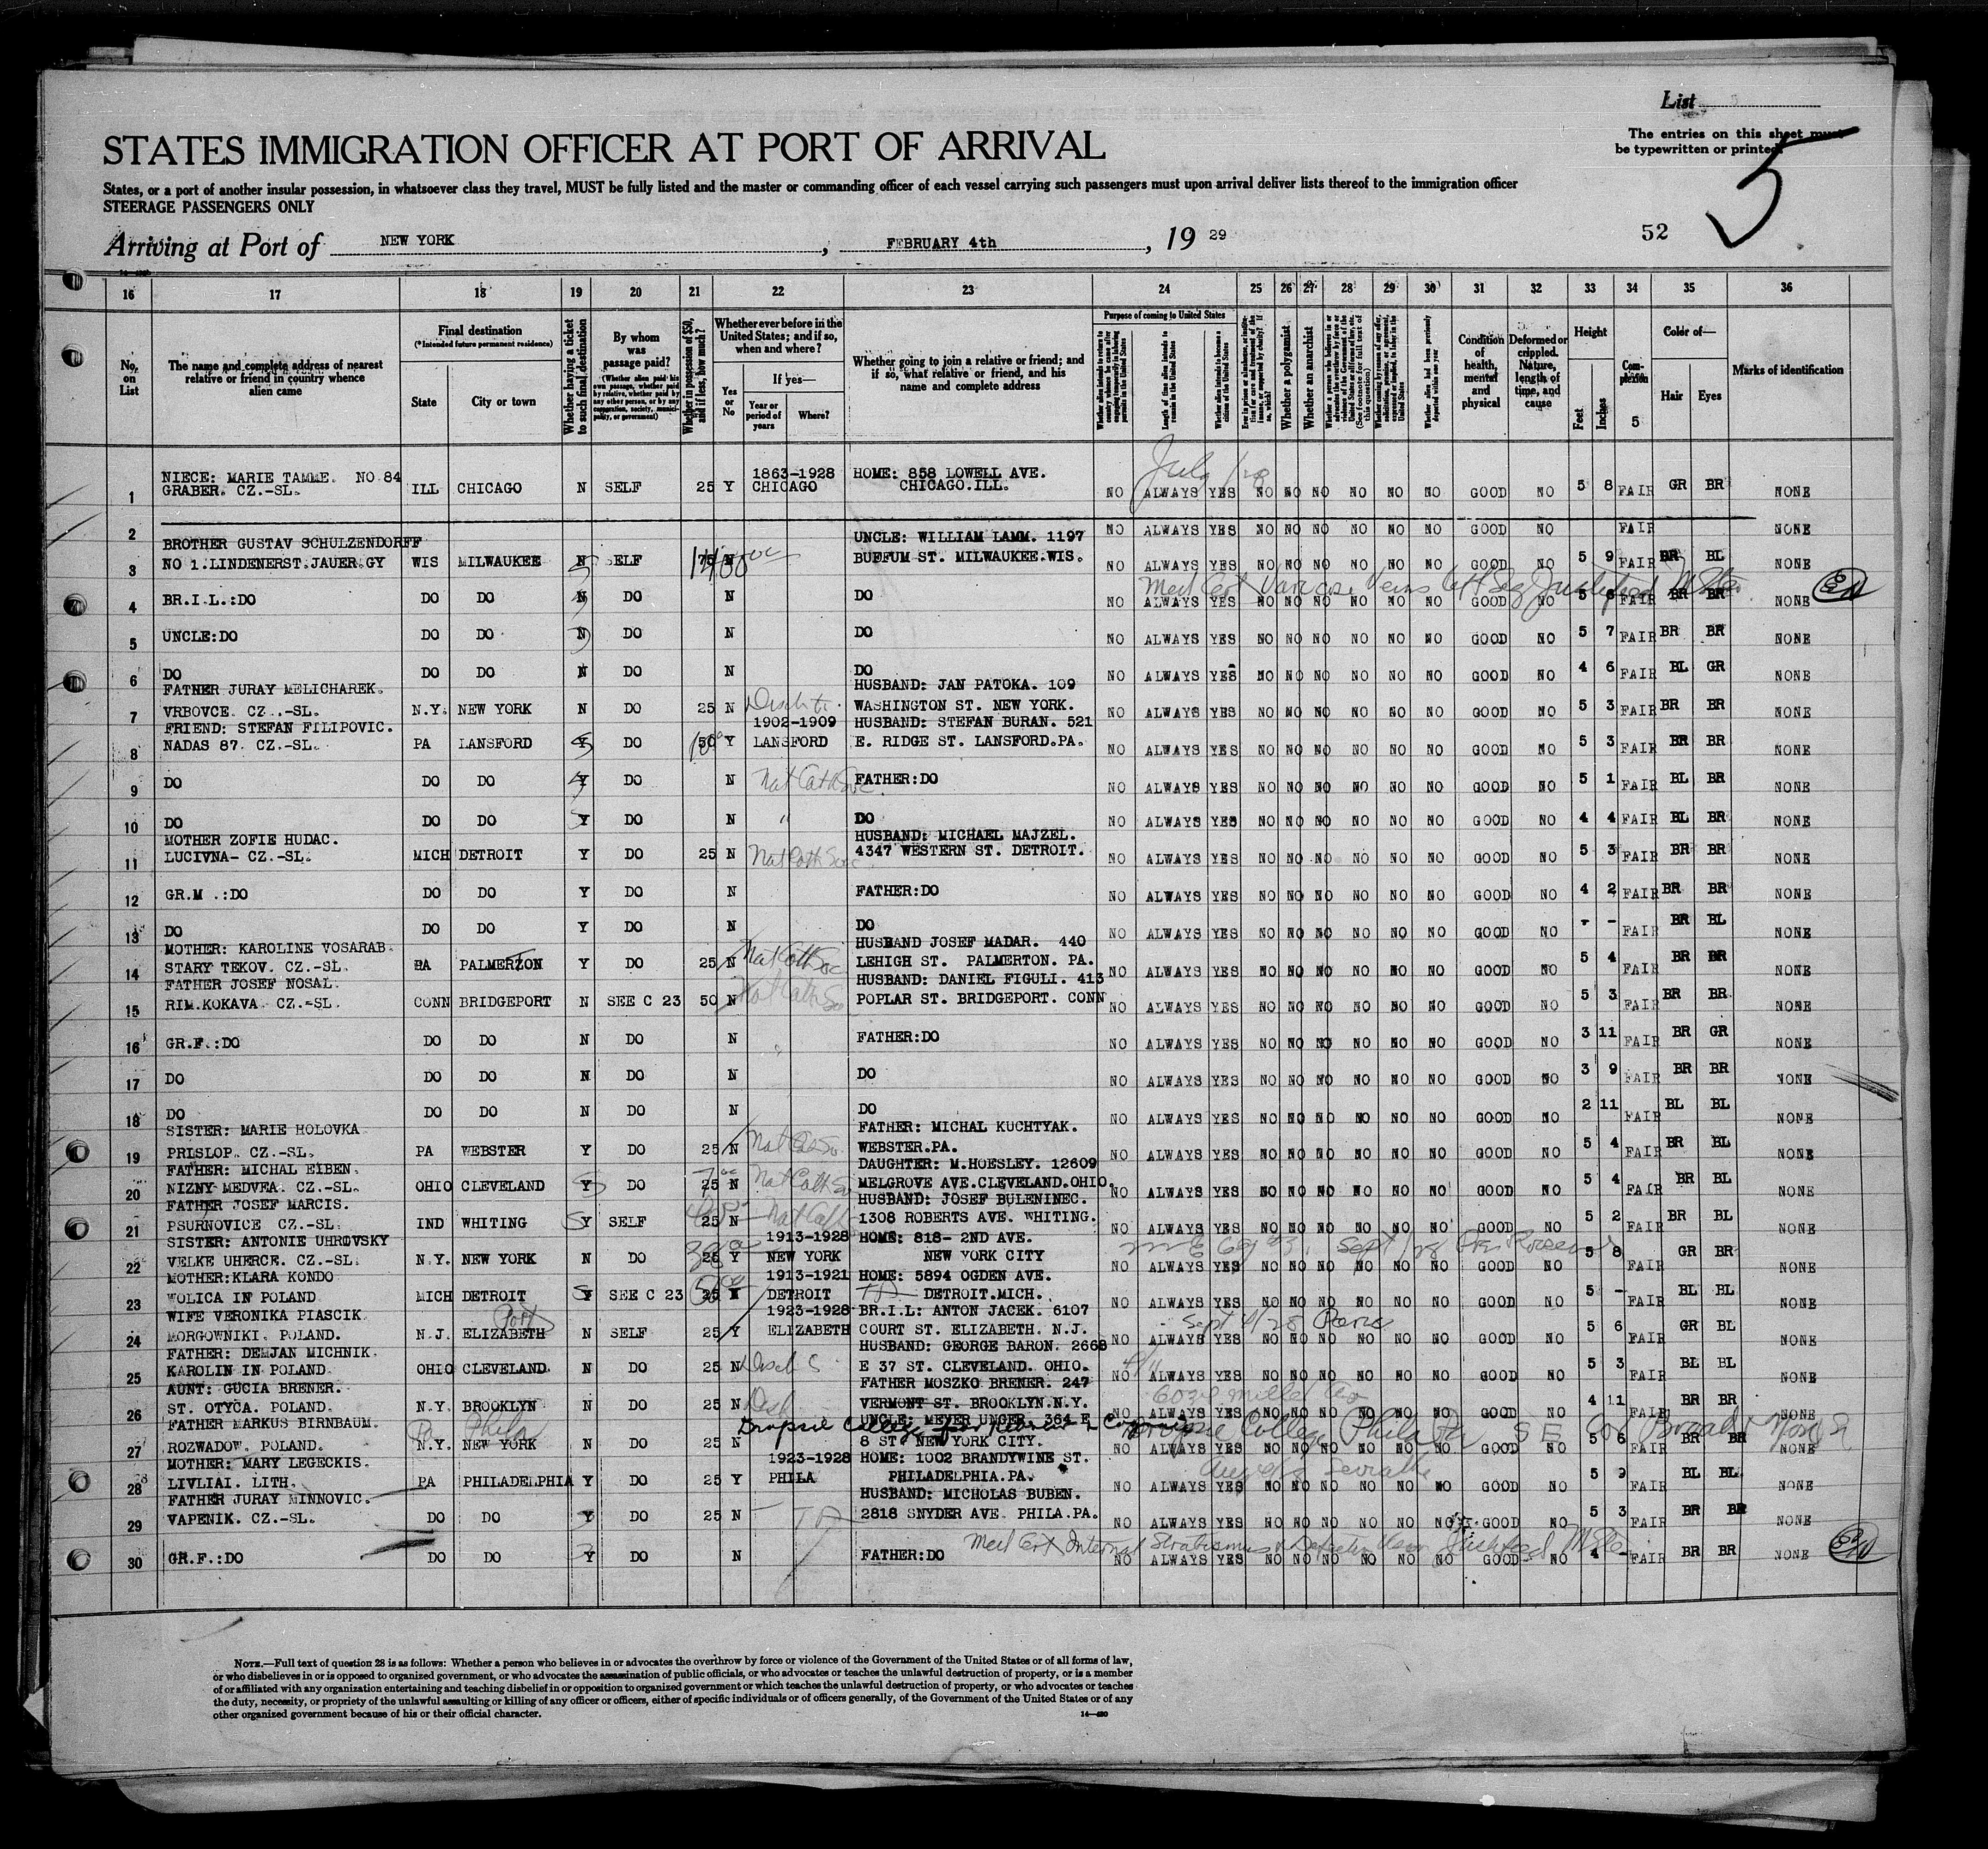 List
The entries on this sheet must
be typewritten or printed.
5
STATES IMMIGRATION OFFICER AT PORT OF ARRIVAL
States, or a port of another insular possession, in whatsoever class they travel, MUST be fully listed and the master or commanding officer of each vessel carrying such passengers must upon arrival deliver lists thereof to the immigration officer
STEERAGE PASSENGERS ONLY
Arriving at Port of NEW YORK, FEBRUARY 4th, 19 29
52
16 17 18 19 20 21 22 23 24 25 26 27 28 29 30 31 32 33 34 35 36
No. on List
The name and complete address of nearest relative or friend in country whence alien came
Final destination
(*Intended future permanent residence)
State
City or town
Whether having a ticket to such final destination
By whom was passage paid?
Whether in possession of $50, and if less, how much?
Whether ever before in the United States; and if so, when and where?
Yes or No
If yes—
Year or period of years
Where?
Whether going to join a relative or friend; and if so, what relative or friend, and his name and complete address
Purpose of coming to United States
Whether a polygamist
Whether an anarchist
Condition of health, mental and physical
Deformed or crippled. Nature, length of time, and cause
Height
Feet
Inches
Complexion
5
Color of—
Hair
Eyes
Marks of identification
July /28
1 NIECE: MARIE TAMME. NO 84 GRABER. CZ.-SL. ILL CHICAGO N SELF 25 Y 1863-1928 CHICAGO HOME: 858 LOWELL AVE. CHICAGO.ILL. NO ALWAYS YES NO NO NO NO NO NO GOOD NO 5 8 FAIR GR BR NONE
2 NO ALWAYS YES NO NO NO NO NO NO GOOD NO FAIR NONE
3 BROTHER GUSTAV SCHULZENDORFF NO 1.LINDENERST.JAUER.GY WIS MILWAUKEE N SELF N UNCLE: WILLIAM LAMM. 1197 BUFFUM ST. MILWAUKEE.WIS. NO ALWAYS YES NO NO NO NO NO NO GOOD NO 5 9 FAIR BR BL NONE
4 BR.I.L.:DO DO DO N DO N DO NO ALWAYS YES NO NO NO NO NO NO GOOD NO 5 6 FAIR BR BR NONE
5 UNCLE:DO DO DO N DO N DO NO ALWAYS YES NO NO NO NO NO NO GOOD NO 5 7 FAIR BR BR NONE
6 DO DO DO N DO N DO NO ALWAYS YES NO NO NO NO NO NO GOOD NO 4 6 FAIR BL GR NONE
7 FATHER JURAY MELICHAREK. VRBOVCE. CZ.-SL. N.Y. NEW YORK N DO 25 N HUSBAND: JAN PATOKA. 109 WASHINGTON ST. NEW YORK. NO ALWAYS YES NO NO NO NO NO NO GOOD NO 5 3 FAIR BR BR NONE
8 FRIEND: STEFAN FILIPOVIC. NADAS 87. CZ.-SL. PA LANSFORD Y DO 50 Y 1902-1909 LANSFORD HUSBAND: STEFAN BURAN. 521 E. RIDGE ST. LANSFORD.PA. NO ALWAYS YES NO NO NO NO NO NO GOOD NO 5 3 FAIR BR BR NONE
9 DO DO DO Y DO N Nat Cath Soc FATHER:DO NO ALWAYS YES NO NO NO NO NO NO GOOD NO 5 1 FAIR BL BR NONE
10 DO DO DO Y DO N " DO NO ALWAYS YES NO NO NO NO NO NO GOOD NO 4 4 FAIR BL BR NONE
11 MOTHER ZOFIE HUDAC. LUCIVNA- CZ.-SL. MICH DETROIT Y DO 25 N Nat Cath Soc HUSBAND: MICHAEL MAJZEL. 4347 WESTERN ST. DETROIT. NO ALWAYS YES NO NO NO NO NO NO GOOD NO 5 3 FAIR BR BR NONE
12 GR.M .:DO DO DO Y DO N FATHER:DO NO ALWAYS YES NO NO NO NO NO NO GOOD NO 4 2 FAIR BR BR NONE
13 DO DO DO Y DO N DO NO ALWAYS YES NO NO NO NO NO NO GOOD NO - - FAIR BR BL NONE
14 MOTHER: KAROLINE VOSARAB. STARY TEKOV. CZ.-SL. PA PALMERTON Y DO 25 N Nat Cath Soc HUSBAND JOSEF MADAR. 440 LEHIGH ST. PALMERTON. PA. NO ALWAYS YES NO NO NO NO NO NO GOOD NO 5 4 FAIR BR BR NONE
15 FATHER JOSEF NOSAL. RIM.KOKAVA. CZ.-SL. CONN BRIDGEPORT N SEE C 23 50 N Nat Cath So HUSBAND: DANIEL FIGULI. 413 POPLAR ST. BRIDGEPORT. CONN NO ALWAYS YES NO NO NO NO NO NO GOOD NO 5 3 FAIR BR BR NONE
16 GR.F.:DO DO DO N DO N FATHER:DO NO ALWAYS YES NO NO NO NO NO NO GOOD NO 3 11 FAIR BR GR NONE
17 DO DO DO N DO N DO NO ALWAYS YES NO NO NO NO NO NO GOOD NO 3 9 FAIR BR BR NONE
18 DO DO DO N DO N DO NO ALWAYS YES NO NO NO NO NO NO GOOD NO 2 11 FAIR BL BL NONE
19 SISTER: MARIE HOLOVKA PRISLOP. CZ.-SL. PA WEBSTER Y DO 25 N FATHER: MICHAL KUCHTYAK. WEBSTER.PA. NO ALWAYS YES NO NO NO NO NO NO GOOD NO 5 4 FAIR BR BL NONE
20 FATHER: MICHAL EIBEN. NIZNY MEDVEA. CZ.-SL. OHIO CLEVELAND Y DO 25 N Nat Cath So DAUGHTER: M.HOESLEY. 12609 MELGROVE AVE.CLEVELAND.OHIO. NO ALWAYS YES NO NO NO NO NO NO GOOD NO 5 4 FAIR BR BL NONE
21 FATHER JOSEF MARCIS. PSURNOVICE CZ.-SL. IND WHITING Y SELF 25 N Nat Cath HUSBAND: JOSEF BULENINEC. 1308 ROBERTS AVE. WHITING. NO ALWAYS YES NO NO NO NO NO NO GOOD NO 5 2 FAIR BR BL NONE
22 SISTER: ANTONIE UHROVSKY VELKE UHERCE. CZ.-SL. N.Y. NEW YORK N DO 25 Y 1913-1928 NEW YORK HOME: 818- 2ND AVE. NEW YORK CITY NO ALWAYS YES NO NO NO NO NO NO GOOD NO 5 8 FAIR GR BR NONE
23 MOTHER:KLARA KONDO WOLICA IN POLAND MICH DETROIT Y SEE C 23 25 1913-1921 DETROIT HOME: 5894 OGDEN AVE. DETROIT.MICH. NO ALWAYS YES NO NO NO NO NO NO GOOD NO 5 - FAIR BL BL NONE
24 WIFE VERONIKA PIASCIK MORGOWNIKI. POLAND. N.J. ELIZABETH N SELF 25 Y 1923-1928 ELIZABETH BR.I.L: ANTON JACEK. 6107 COURT ST. ELIZABETH. N.J. NO ALWAYS YES NO NO NO NO NO NO GOOD NO 5 6 FAIR GR BL NONE
25 FATHER: DEMJAN MICHNIK. KAROLIN IN POLAND OHIO CLEVELAND. N DO 25 N HUSBAND: GEORGE BARON. 2668 E 37 ST. CLEVELAND. OHIO. NO ALWAYS YES NO NO NO NO NO NO GOOD NO 5 3 FAIR BL BL NONE
26 AUNT: GUCIA BRENER. ST. OTYCA. POLAND. N.Y. BROOKLYN N DO 25 N FATHER MOSZKO BRENER. 247 VERMONT ST. BROOKLYN.N.Y. NO ALWAYS YES NO NO NO NO NO NO GOOD NO 4 11 FAIR BR BR NONE
27 FATHER MARKUS BIRNBAUM. ROZWADOW. POLAND. N.Y. NEW YORK Pa Phila N DO 25 N UNCLE: MEYER UNGER. 364 E 8 ST. NEW YORK CITY. Dropsie College Phila Pa NO ALWAYS YES NO NO NO NO NO NO GOOD NO 5 6 FAIR BR BR NONE
28 MOTHER: MARY LEGECKIS. LIVLIAI. LITH. PA PHILADELPHIA Y DO 25 Y 1923-1928 PHILA HOME: 1002 BRANDYWINE ST. PHILADELPHIA.PA. NO ALWAYS YES NO NO NO NO NO NO GOOD NO 5 9 FAIR BL BL NONE
29 FATHER JURAY MINNOVIC. VAPENIK. CZ.-SL. DO DO Y DO 25 N HUSBAND: MICHOLAS BUBEN. 2818 SNYDER AVE. PHILA.PA. NO ALWAYS YES NO NO NO NO NO NO GOOD NO 5 3 FAIR BR BR NONE
30 GR.F.:DO DO DO Y DO N FATHER:DO NO ALWAYS YES NO NO NO NO NO NO GOOD NO 4 - FAIR BR BR NONE
NOTE.—Full text of question 28 is as follows: Whether a person who believes in or advocates the overthrow by force or violence of the Government of the United States or of all forms of law,
or who disbelieves in or is opposed to organized government, or who advocates the assassination of public officials, or who advocates or teaches the unlawful destruction of property, or is a member
of or affiliated with any organization entertaining and teaching disbelief in or opposition to organized government or which teaches the unlawful destruction of property, or who advocates or teaches
the duty, necessity, or propriety of the unlawful assaulting or killing of any officer or officers, either of specific individuals or of officers generally, of the Government of the United States or of any
other organized government because of his or their official character.
14—480